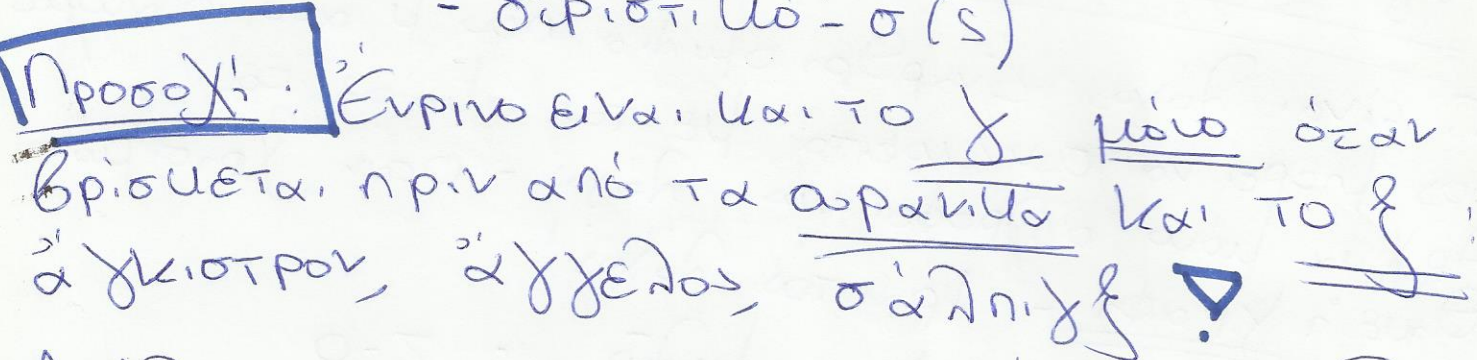 - συριστικό - σ (ς)
Προσοχή: Ἔνρινο είναι και το γ μόνο όταν
βρίσκεται πριν από τα ουρανικά και το ξ:
ἄγκιστρον, ἄγγελος, σάλπιγξ